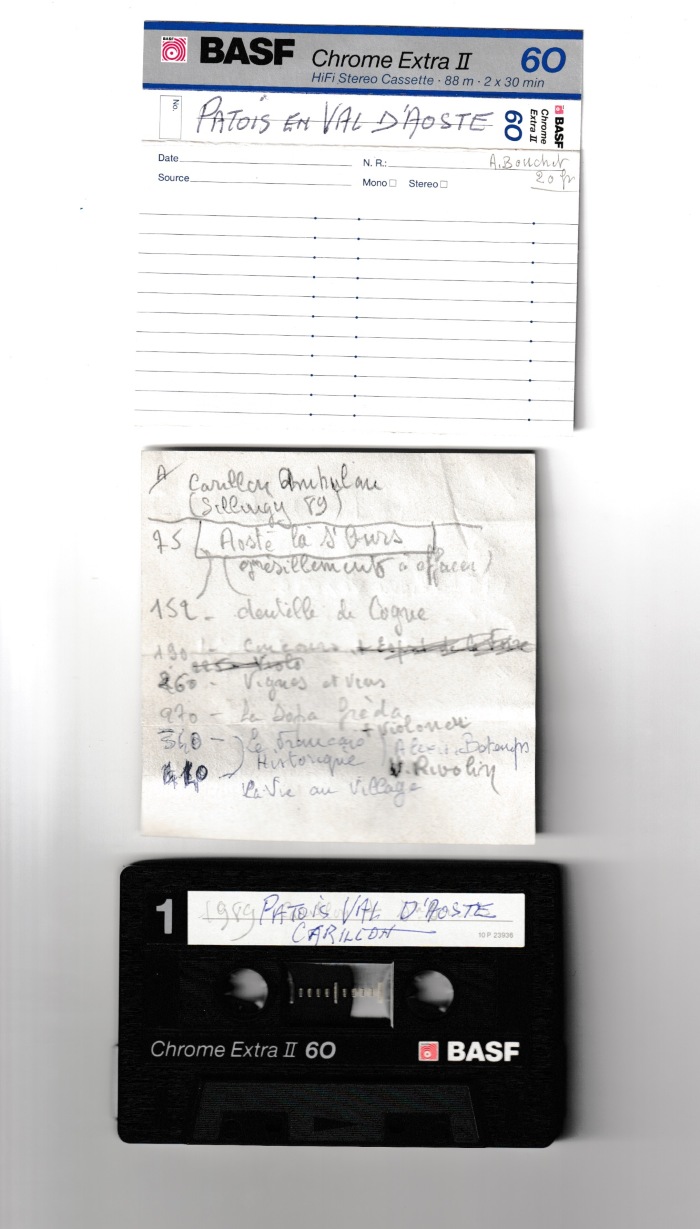 BASF Chrome Extra II 60
HiFi Stereo Cassette · 88 m · 2 x 30 min
No. PATOIS EN VAL D'AOSTE 60 Chrome Extra II BASF
Date N. R.: A. Bouchet
Source Mono Stereo 20 fr
A Carillon Ambulan
(Sillingy 89)
75 Aoste la St Ours
(grésillements à effacer)
152 - dentelle de Cogne
190 - concours
260 - Vignes et vins
La Sopa
+ violoneu
340 - Le Français
Historique
V. Rivolin
410
La Vie au Village
1 1989 PATOIS VAL D'AOSTE
CARILLON
10 P 23936
Chrome Extra II 60 BASF